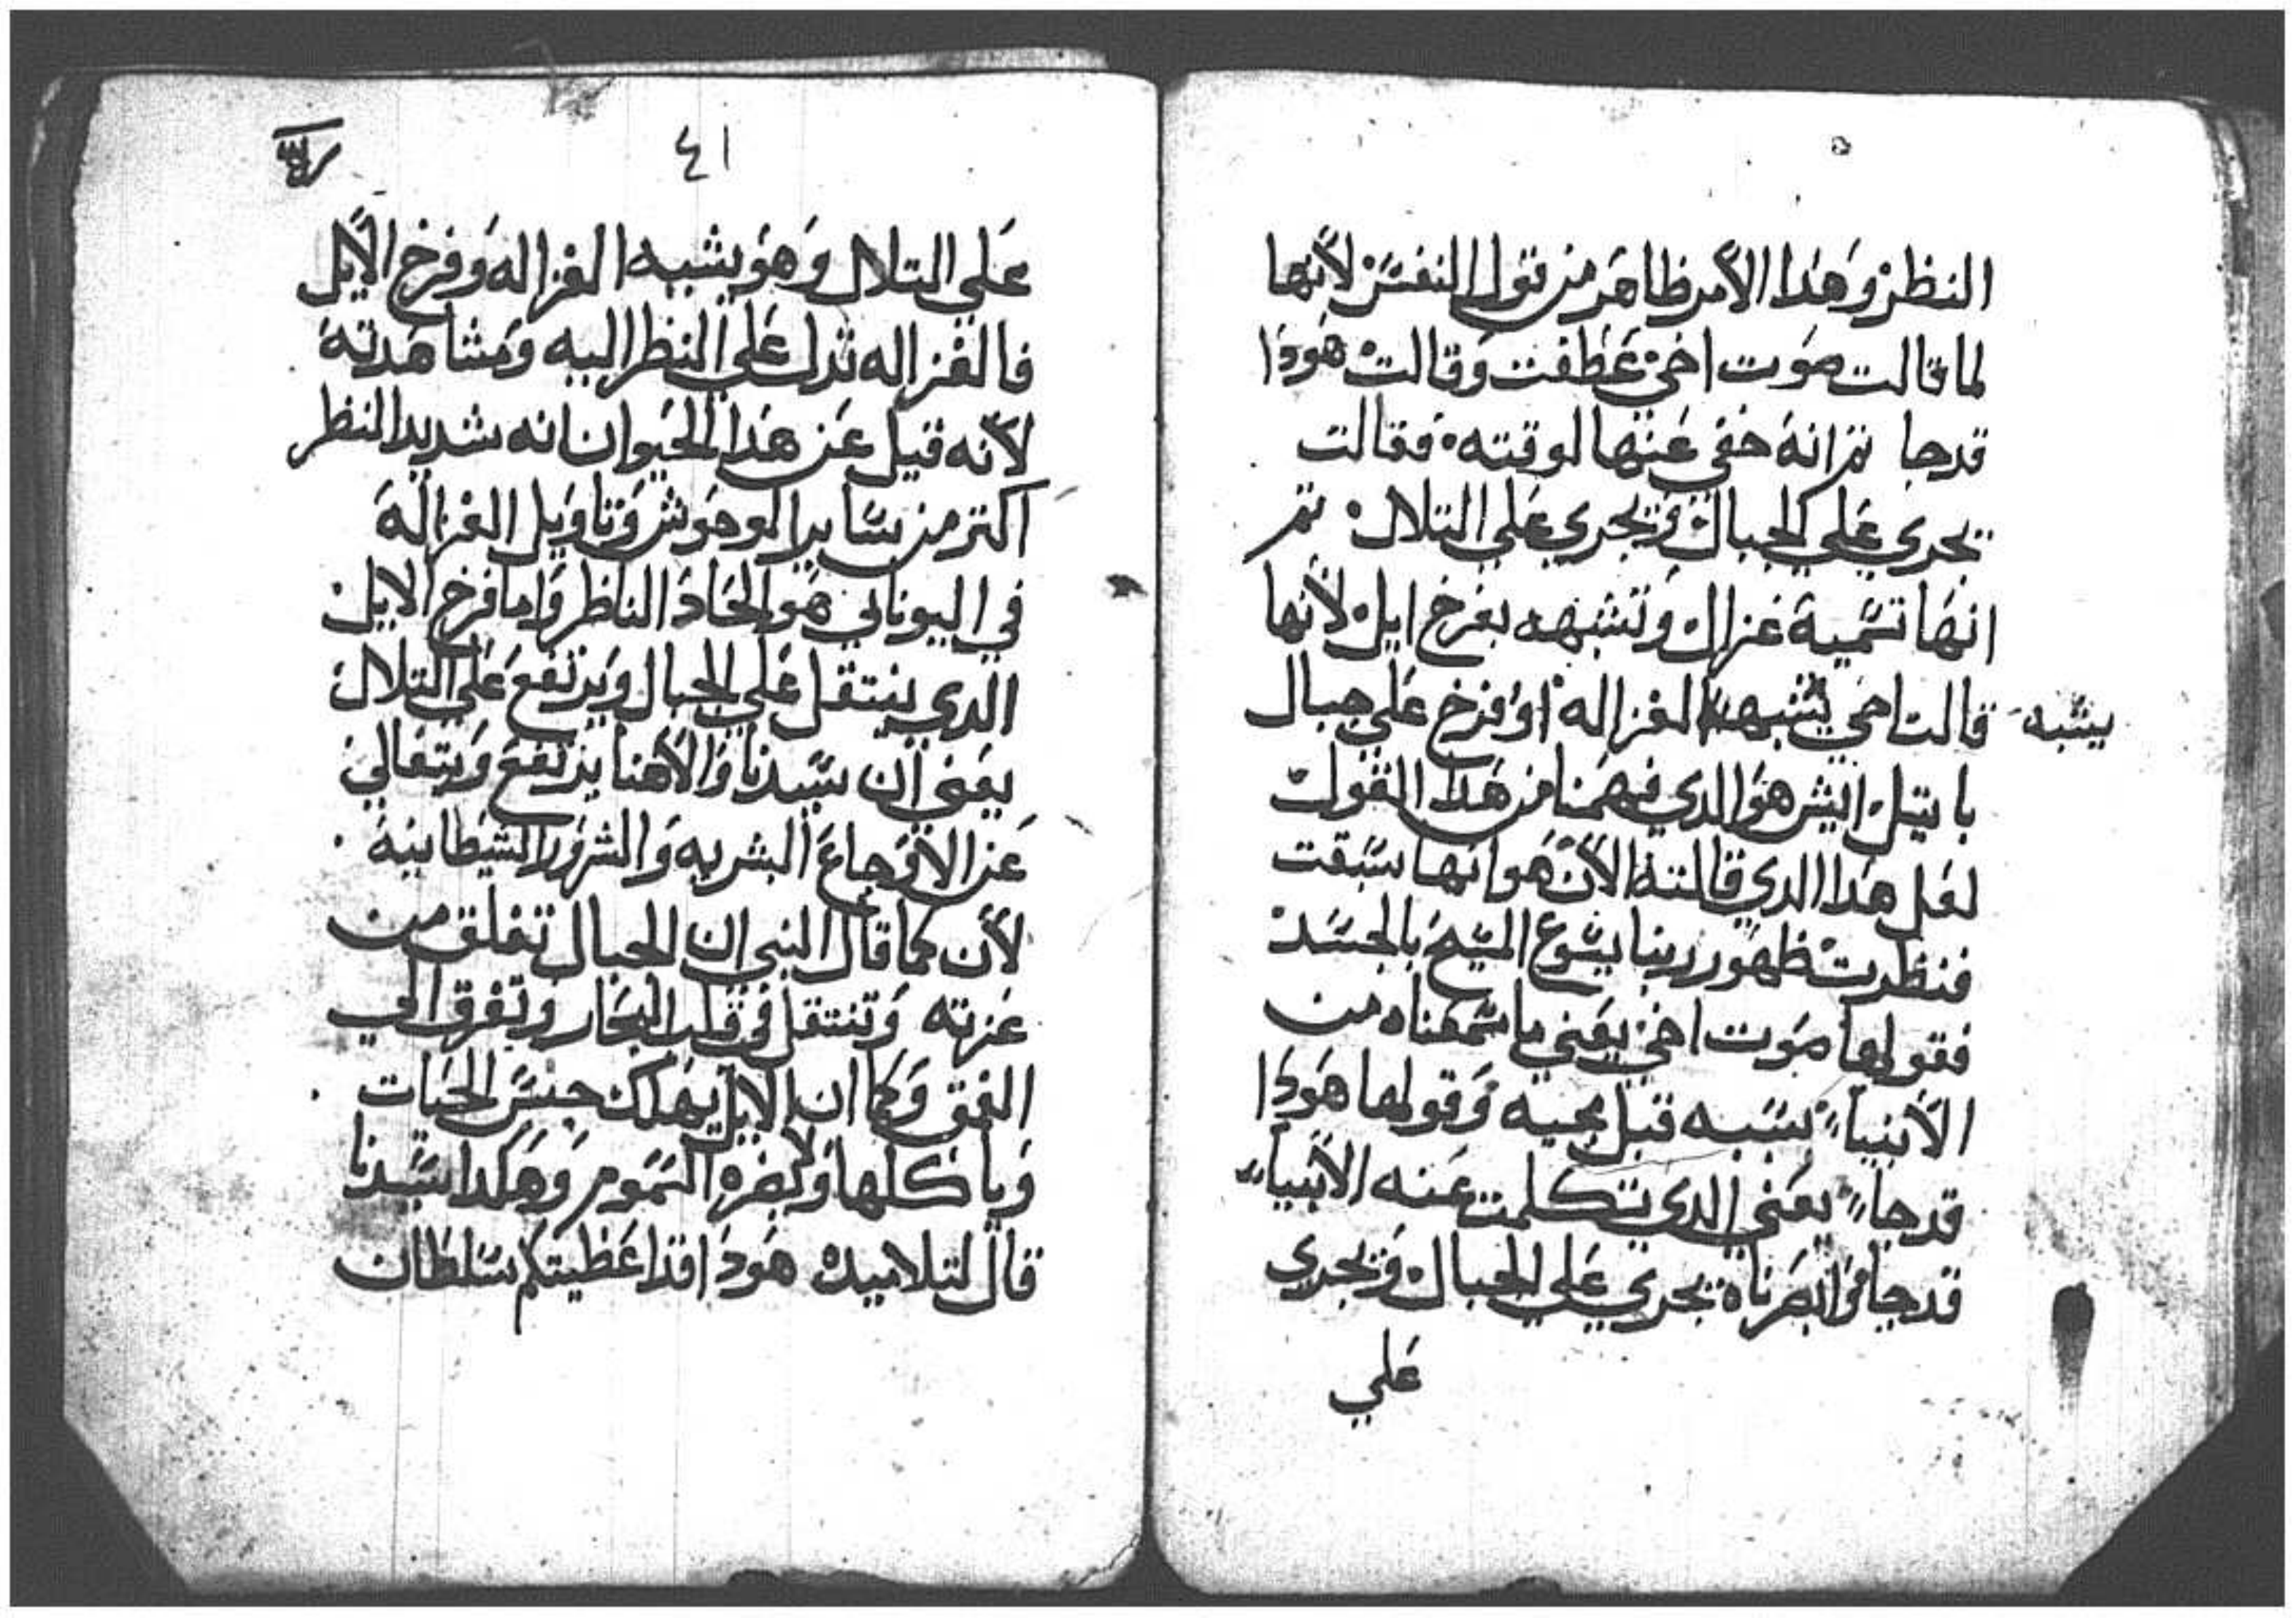 النظر وَهَدا الأمر ظاهَر من قول النفسَ لأنها
لما قالت صَوت اخي عَطفت وَقالت هَودَا
قدجا تم انهَ خفي عَنها لوقته فقالت
يجري عَلي الجبال وَيجري عَلي التلال تم
انهَا تسَمية غزال وَتشبهه بفرخ ايل لأنها
قالت اخي يشبه الغزاله اوَ فرخ عَلي جبال
يشبه
باتيل ايش هوَ الدي فهمَنا من هَدا القول
لعَل هَدا الدي قالته الأن هَو انها سَبقت
فنظرت ظهَور ربنا يسَوع المسَيح بالجسَد
فقولها صَوت اخي يعَني ما سَمعَناه من
الأنبيا بسَببه قبل مجيه وَقولها هَودَا
قدجا يعَني الدي تتكلمت عَنه الأنبيا
قدجا وَابصَرناه يجري عَلي الجبال وَيجري
عَلي
٤١
عَلي التلال وَهوَ يشبه الغزاله وَفرخ الأيل
فالغزاله تدل عَلي النظر اليه وَمشاهَدتهَ
لأنه قيل عَن هَدا الحيَوان انه شديد النظر
اكتر من سَاير الوحوَش وَتاوَيل الغزالهَ
في اليوناني هَو الحَاد الناظر وَاما فرخ الايل
الدي ينتقل عَلي الجبال وَيرتفعَ عَلي التلال
يعَني ان سَيدنا وَالأهنا يرتفعَ وَيتعَالي
عَن الأوَجاعَ البشريه وَالشرَور الشيَطانيهَ
لأن كما قال النبي ان الجبال تقلق من
عَزته وَتنتقل في قلب البحَار وَتغرق الي
العمق وَكما ان الايل يهَلك جنسَ الحيَات
وَياكلها وَلا يضره السَمَوم وَهَكدا سَيَدنا
قال لتلاميده هَودَا قد اعَطيتكم سَلطان